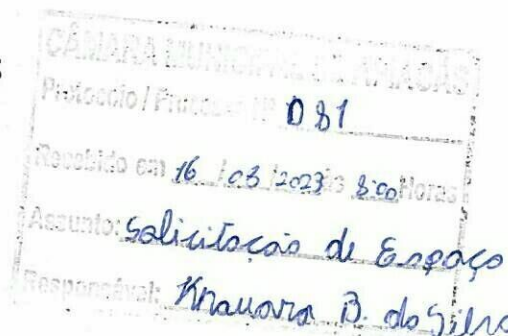 CÂMARA MUNICIPAL DE APIACÁS
Protocolo / Processo Nº 081
Recebido em 16 / 03 / 2023 às 8:00 Horas
Assunto: Solicitação de Espaço
Responsável: B. da Silva